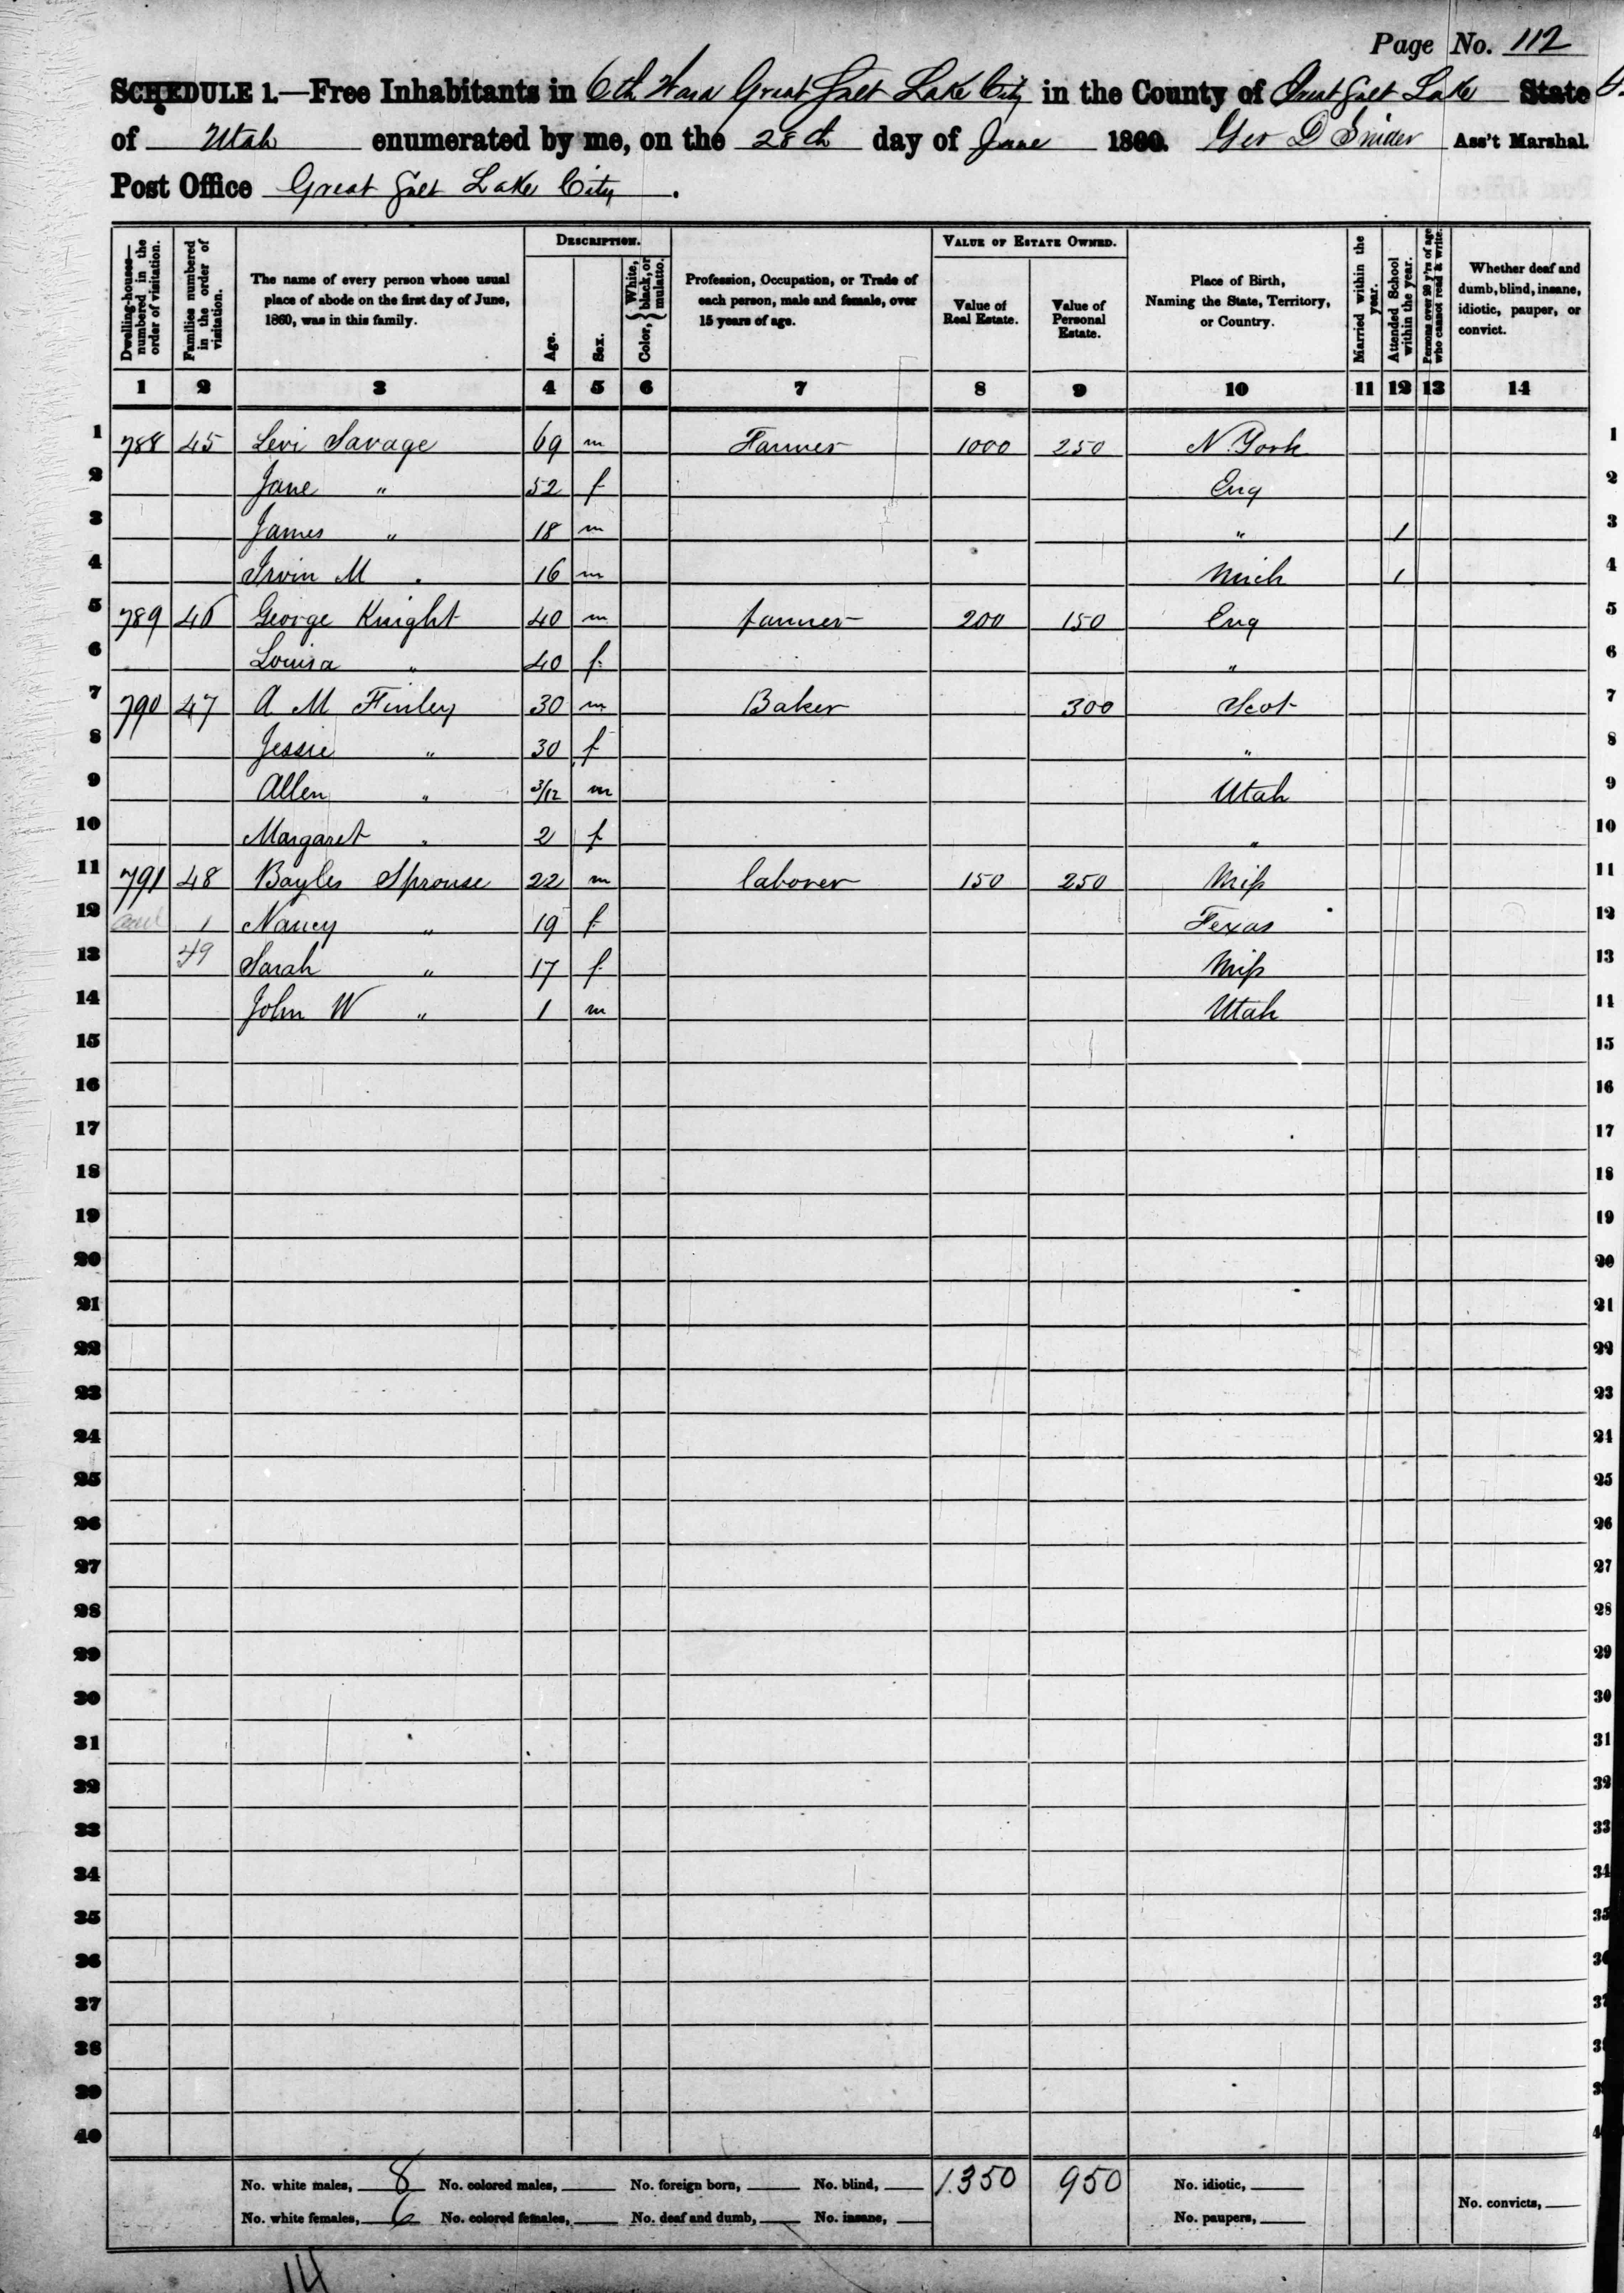 Page No. 112
SCHEDULE 1.—Free Inhabitants in 6th Ward Great Salt Lake City in the County of Great Salt Lake State
of Utah enumerated by me, on the 28th day of June 1860. Geo D Snider Ass't Marshal.
Post Office Great Salt Lake City.
Dwelling-houses—numbered in the order of visitation. Families numbered in the order of visitation. The name of every person whose usual place of abode on the first day of June, 1860, was in this family. DESCRIPTION. Age. Sex. Color, { White, black, or mulatto. Profession, Occupation, or Trade of each person, male and female, over 15 years of age. VALUE OF ESTATE OWNED. Value of Real Estate. Value of Personal Estate. Place of Birth, Naming the State, Territory, or Country. Married within the year. Attended School within the year. Persons over 20 y'rs of age who cannot read & write. Whether deaf and dumb, blind, insane, idiotic, pauper, or convict.
1 2 3 4 5 6 7 8 9 10 11 12 13 14
1 788 45 Levi Savage 69 m Farmer 1000 250 N. York 1
2 Jane " 52 f Eng 2
3 James " 18 m " 1 3
4 Irvin M . 16 m Mich 1 4
5 789 46 George Knight 40 m farmer 200 150 Eng 5
6 Louisa " 40 f " 6
7 790 47 A M Finley 30 m Baker 300 Scot 7
8 Jessie " 30 f " 8
9 Allen " 3/12 m Utah 9
10 Margaret " 2 f " 10
11 791 48 Bayles Sprouse 22 m laborer 150 250 Miss 11
12 1 Nancy " 19 f Texas 12
13 49 Sarah " 17 f Miss 13
14 John W " 1 m Utah 14
15 15
16 16
17 17
18 18
19 19
20 20
21 21
22 22
23 23
24 24
25 25
26 26
27 27
28 28
29 29
30 30
31 31
32 32
33 33
34 34
35 35
36
37
38
39
40
No. white males, 8 No. colored males, No. foreign born, No. blind, 1350 950 No. idiotic,
No. white females, 6 No. colored females, No. deaf and dumb, No. insane, No. paupers, No. convicts,
14